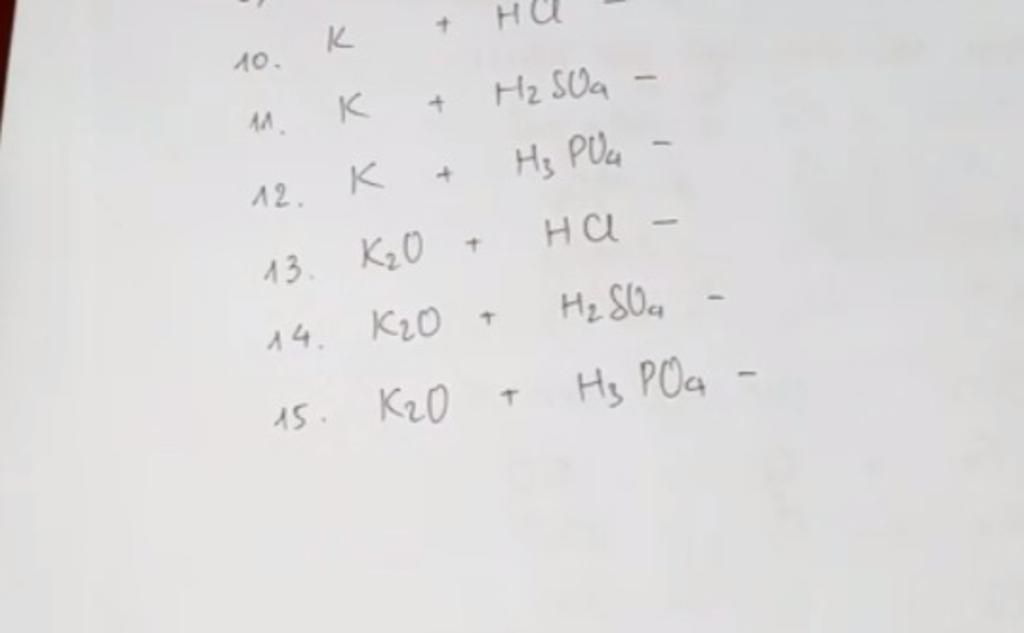 10. K + HCl -
11. K + H2SO4 -
12. K + H3PO4 -
13. K2O + HCl -
14. K2O + H2SO4 -
15. K2O + H3PO4 -